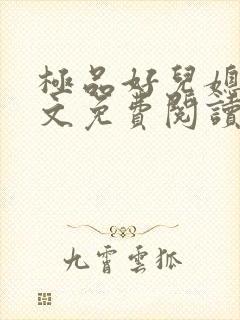 極品好兒媳
文免費閱讀
九霄雲狐